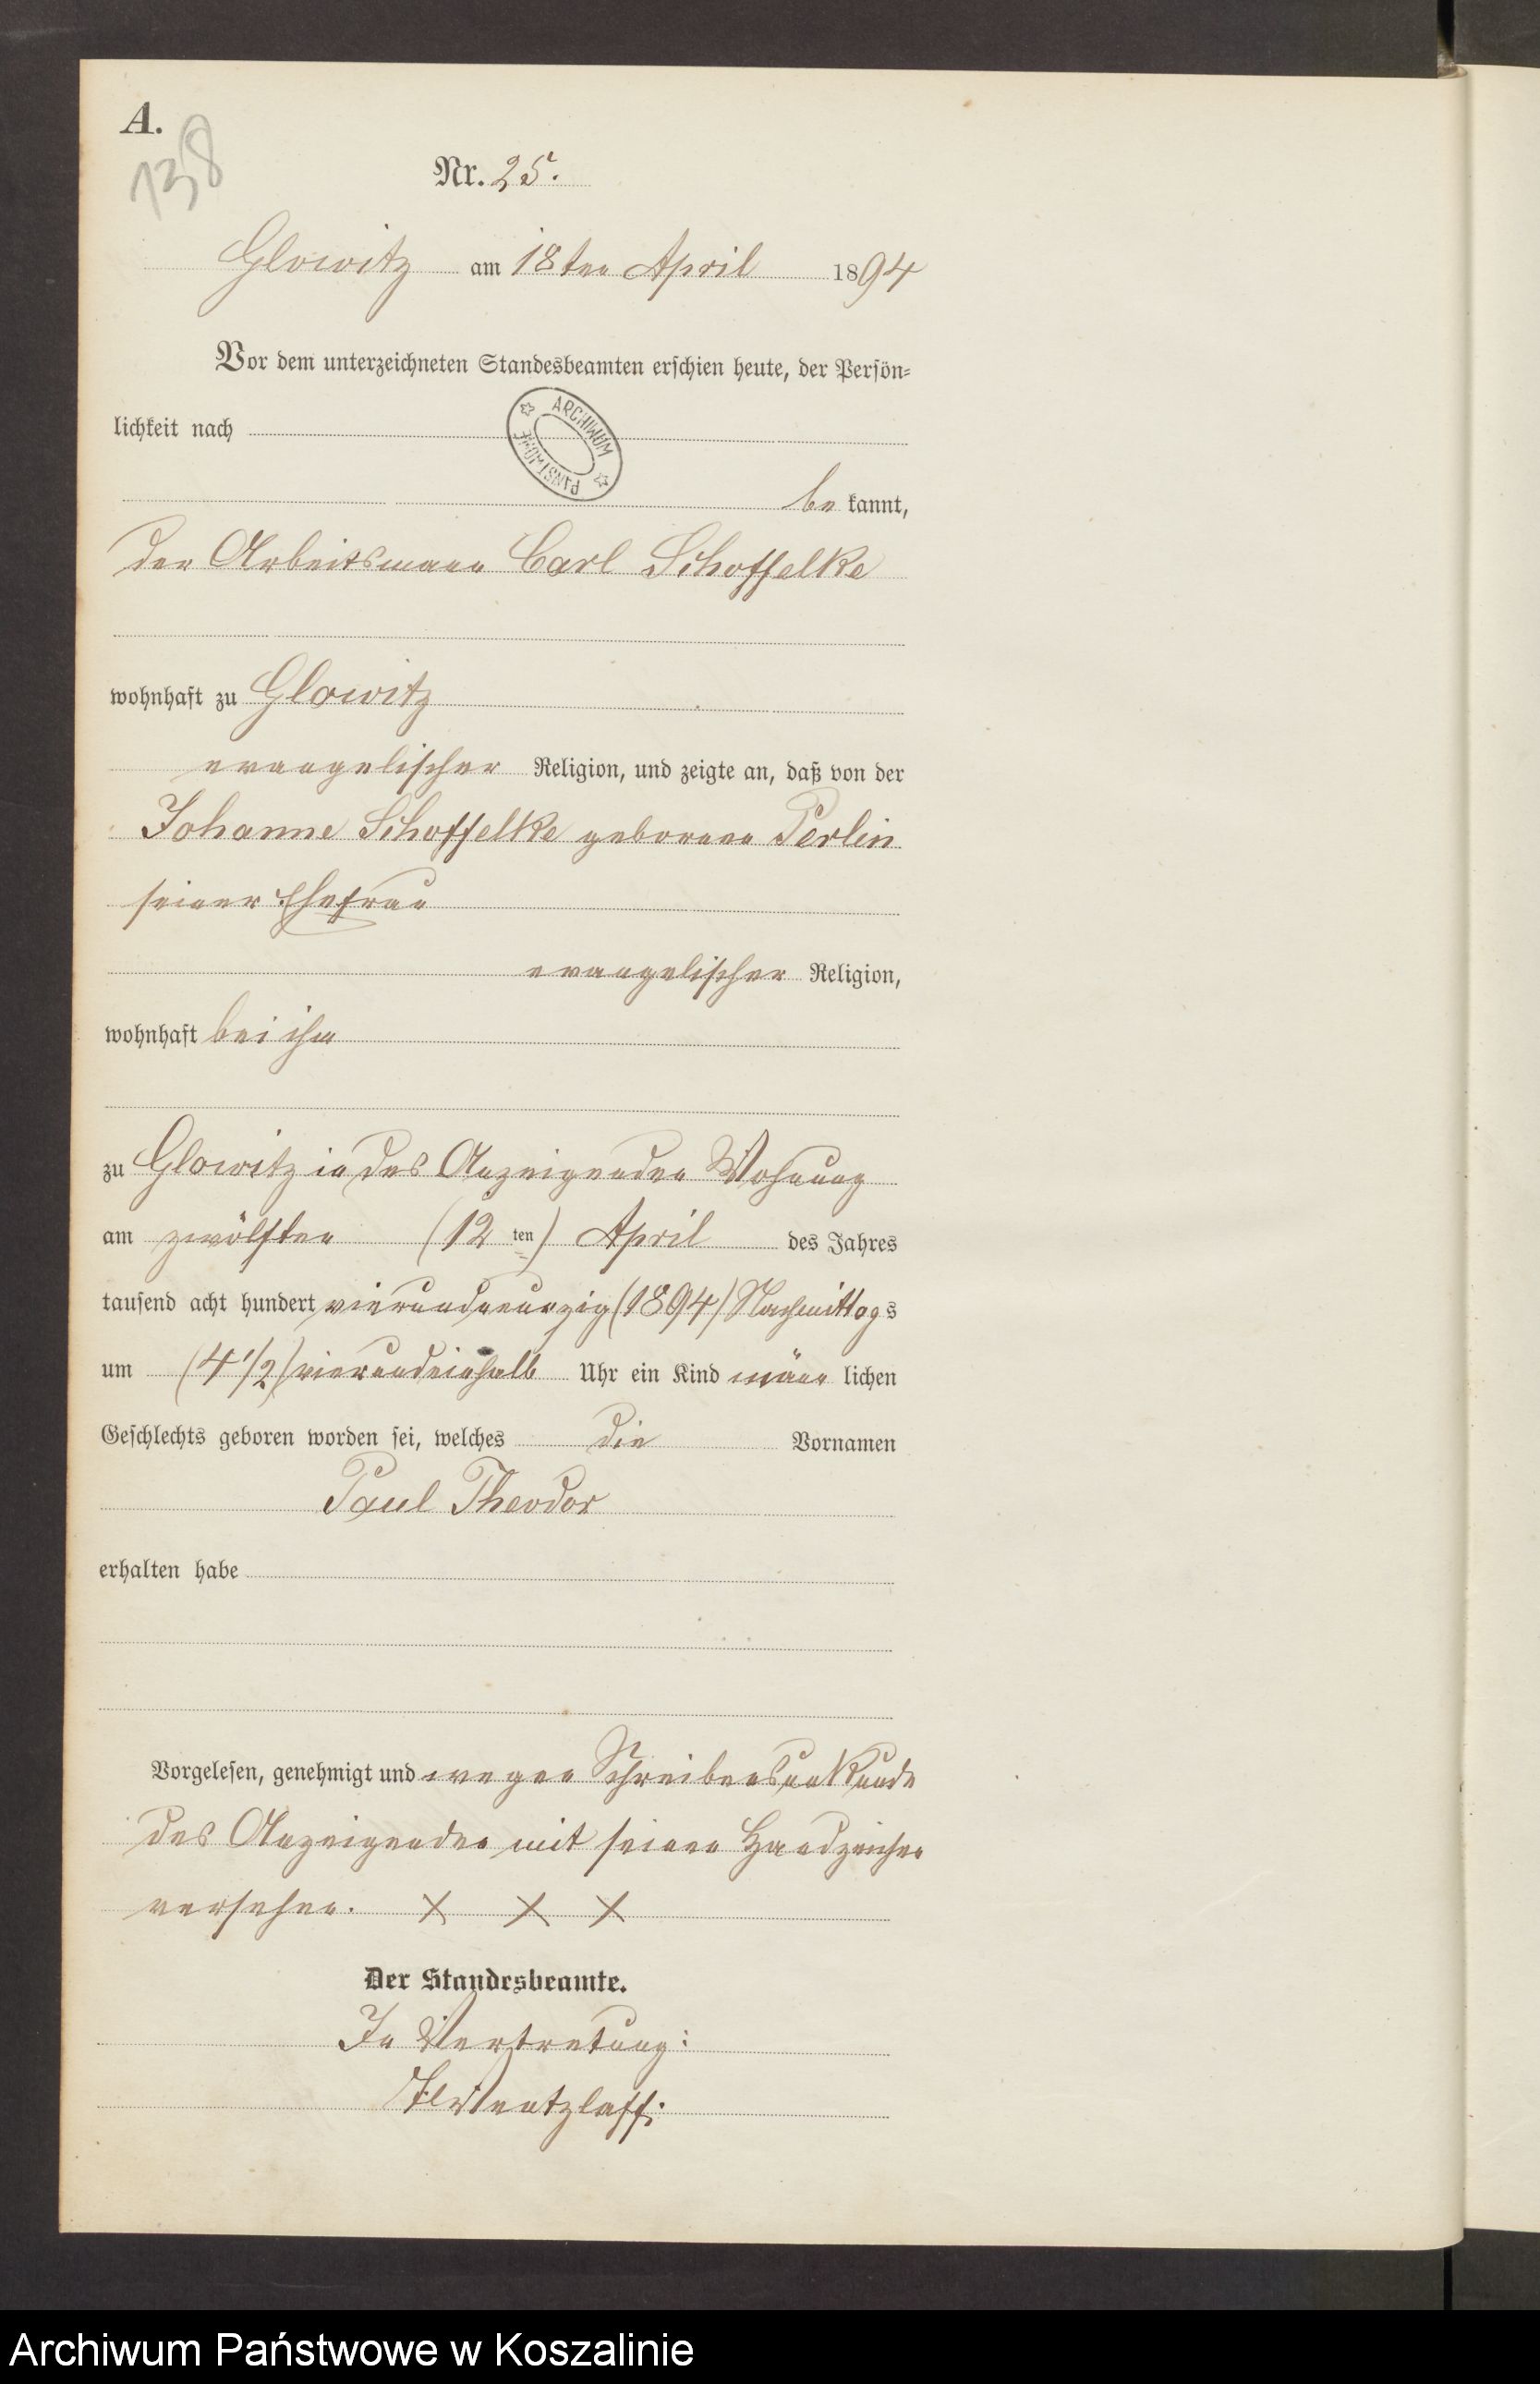 A.
138
Nr. 25.
Glowitz am 18ten April 1894
Vor dem unterzeichneten Standesbeamten erschien heute, der Persön-
lichkeit nach
ARCHIWUM PAŃSTWOWE
be kannt,
der Arbeitsmann Carl Schoffelke
wohnhaft zu Glowitz
evangelischer Religion, und zeigte an, daß von der
Johanne Schoffelke geborenen Perlin
seiner Ehefrau
evangelischer Religion,
wohnhaft bei ihm
zu Glowitz in des Anzeigenden Wohnung
am zwölften (12 ten) April des Jahres
tausend acht hundert vierundneunzig (1894) Nachmittags
um (4 1/2) vierundeinhalb Uhr ein Kind männ lichen
Geschlechts geboren worden sei, welches die Vornamen
Paul Theodor
erhalten habe
Vorgelesen, genehmigt und wegen Schreibensunkunde
des Anzeigenden mit seinen Handzeichen
versehen. X X X
Der Standesbeamte.
In Vertretung:
Wentzlaff.
Archiwum Państwowe w Koszalinie